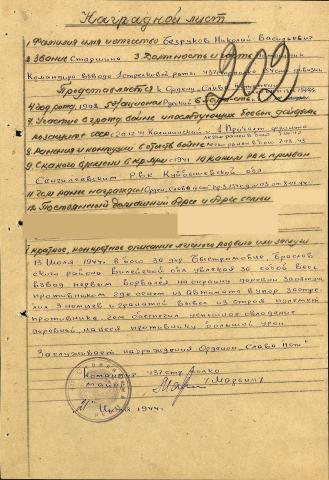 Наградной лист
1. Фамилия имя и отчество Безруков Николай Васильевич
2. Звание Старшина 3. Должность и часть
Командира взвода 1 стрелковой роты 437 стр. полка дивизии
Представляется к Ордену "Слава
4. Год рожд. 1908 5. Национал. Русский 6.
202
7. Участие в гражд. войне и последующих боевых действ.
по защите СССР с 20.12.42 Калининский и 1 Прибалт. фронты
8. Ранения и контузии в отеч. войне легко ранен 7.03.43
9. С какого времени в кр. Арм. с 1941 10. Каким РВК призван
Сенгилеевским РВК Куйбышевской обл
11. Чем ранее награжден Орден "Слава
12. Постоянный домашний адрес и адрес семьи
1. Краткое, конкретное описание личного подвига или заслуг
13 Июля 1944 г. в бою за дер. Быстромовце, Браслов
ского района Вилейской обл увлекая за собой весь
взвод первым ворвался на окраину деревни занятой
противником где огнем из автомата в упор застре
лил 3 немцев и гранатой вывел из строя пулемет
противника, чем обеспечил успешное овладение
деревней, нанеся противнику большой урон
Заслуживает награждения Орденом "Слава
Командир 437 стр. полка
майор
/Марьин/
"21" Июля 1944 г.